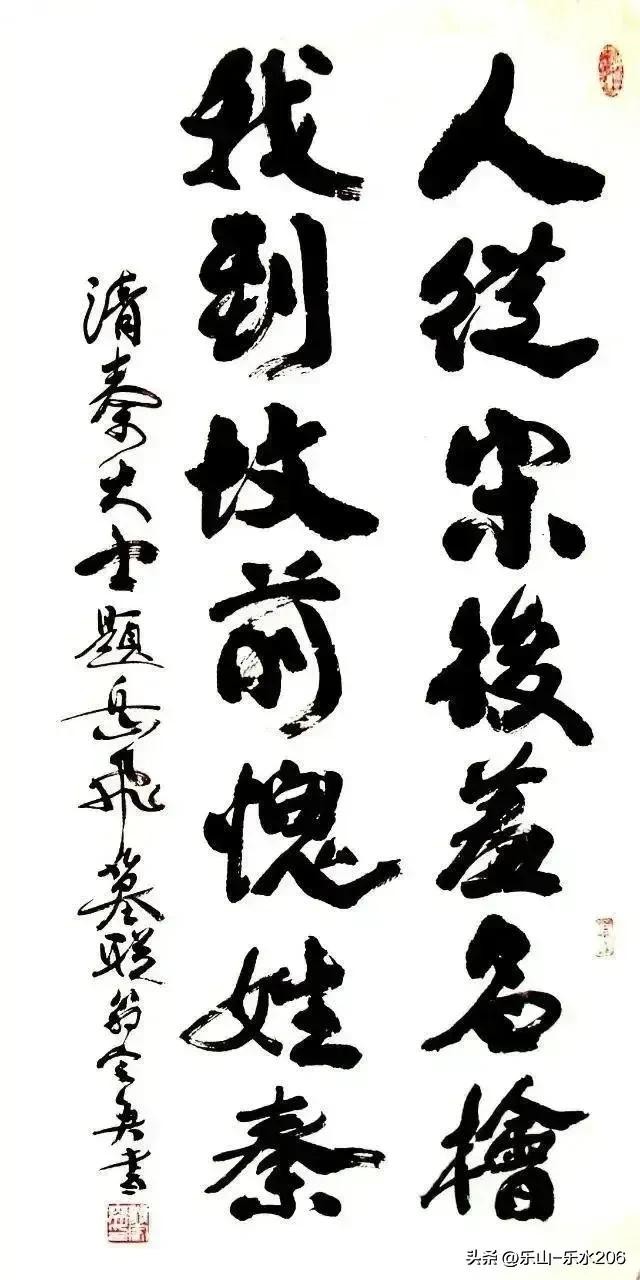 人從宋後羞名檜
我到坟前愧姓秦
清秦大士題岳飛墓联翁書
头条 @乐山-乐水206